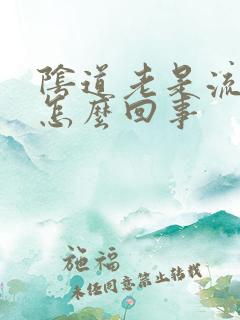 陰道老是流
怎麼回事
施福
未经同意禁止转载